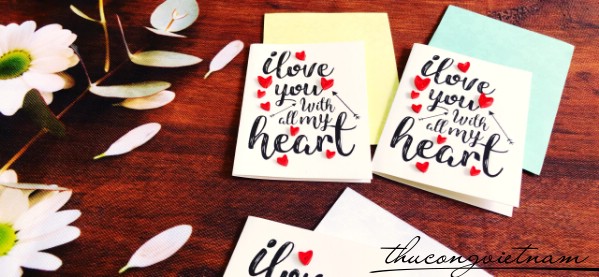 i love
you
with
all my
heart
i love
you
with
all my
heart
i love
thucongvietnam